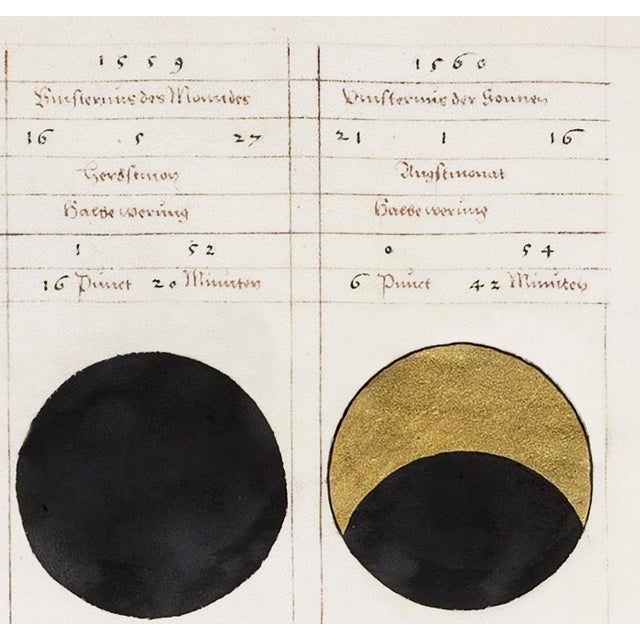 1559
Vinsternus des Monndes
16 5 27
Herbstmon
Halbe werung
1 52
16 Punct 20 Minuten
1560
Vinsternus der Sonnen
21 1 16
Augstmonat
Halbe werung
0 54
6 Punct 42 Minuten